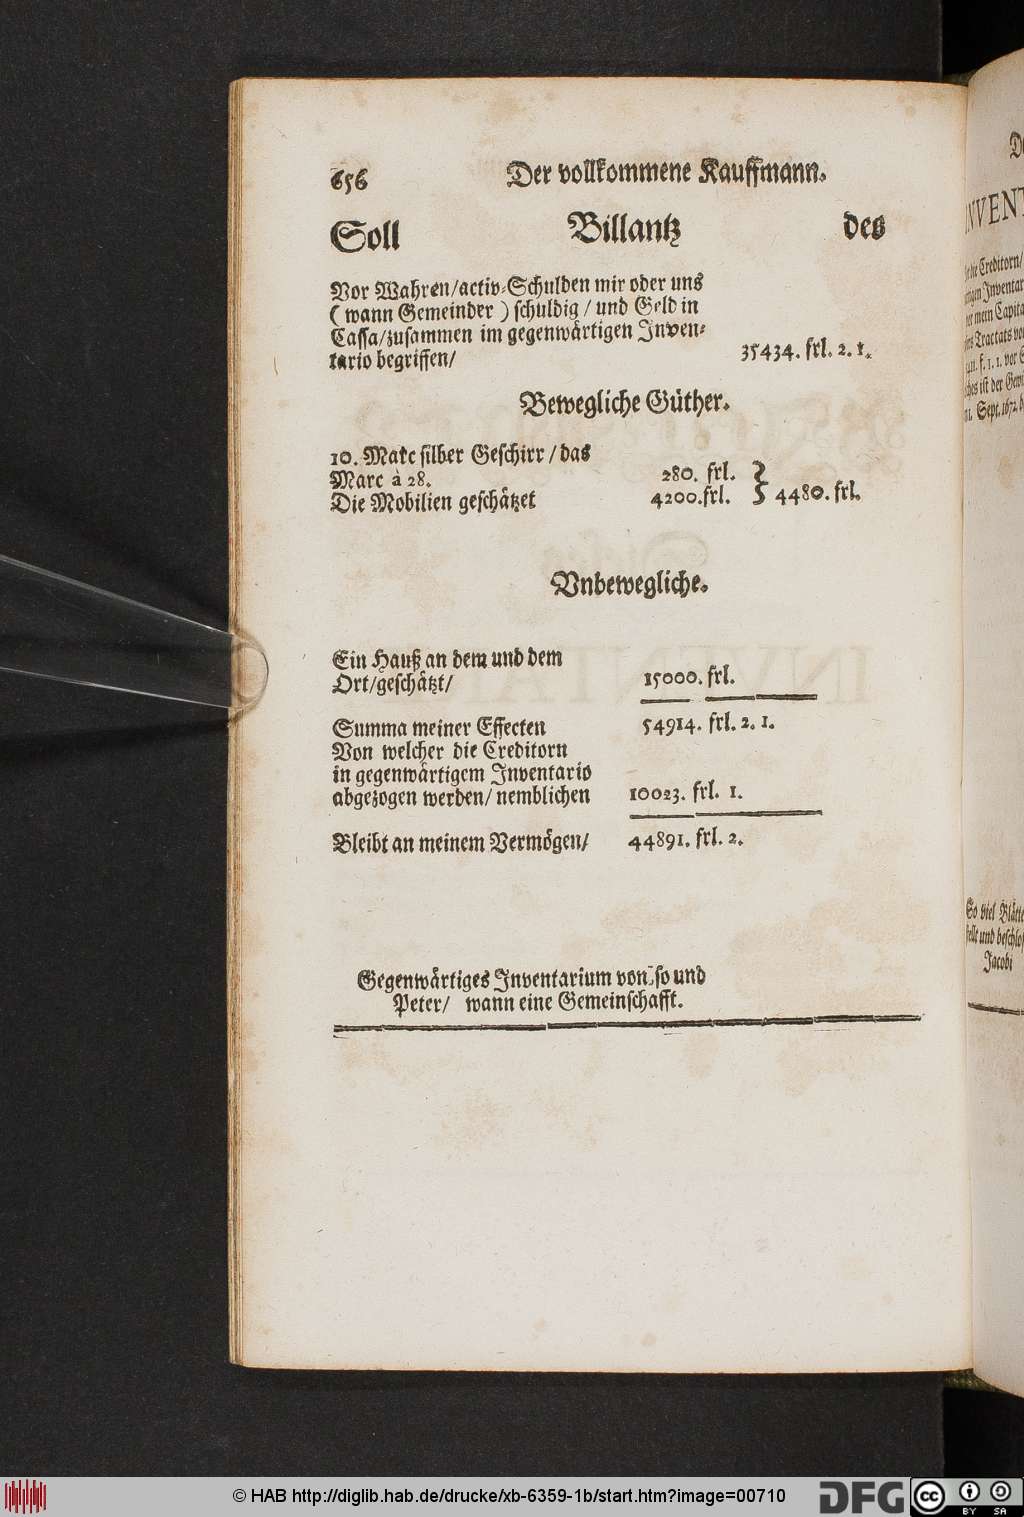 656 Der vollkommene Kauffmann.
Soll Billantz des
Vor Wahren/activ-Schulden mir oder uns
( wann Gemeinder ) schuldig / und Geld in
Cassa/zusammen im gegenwärtigen Inven-
tario begriffen/ 35434. frl. 2. 1.
Bewegliche Güther.
10. Marc silber Geschirr / das
Marc à 28. 280. frl.
Die Mobilien geschätzet 4200.frl. } 4480. frl.
Vnbewegliche.
Ein Hauß an dem und dem
Ort/geschätzt/ 15000. frl.
Summa meiner Effecten 54914. frl. 2. 1.
Von welcher die Creditorn
in gegenwärtigem Inventario
abgezogen werden/ nemblichen 10023. frl. 1.
Bleibt an meinem Vermögen/ 44891. frl. 2.
Gegenwärtiges Inventarium von so und
Peter/ wann eine Gemeinschafft.
So viel
und
Jacobi
© HAB http://diglib.hab.de/drucke/xb-6359-1b/start.htm?image=00710
DFG cc BY SA